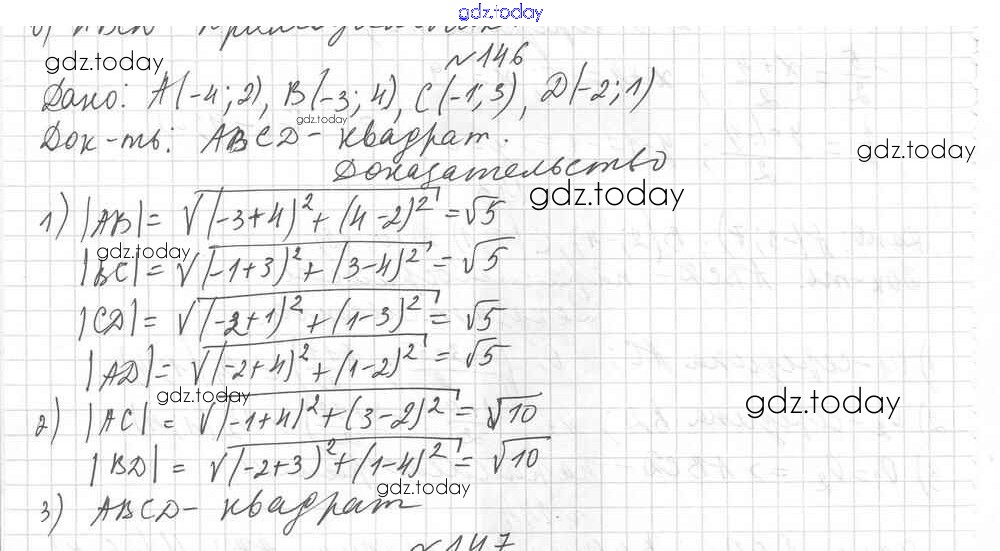 gdz.today
№146
gdz.today
Дано: A(-4; 2), B(-3; 4), C(-1; 3), D(-2; 1)
gdz.today
Док-ть: ABCD - квадрат.
gdz.today
Доказательство
gdz.today
1) |AB| = √(-3+4)²+(4-2)² = √5
gdz.today
|BC| = √(-1+3)²+(3-4)² = √5
|CD| = √(-2+1)²+(1-3)² = √5
|AD| = √(-2+4)²+(1-2)² = √5
gdz.today
gdz.today
2) |AC| = √(-1+4)²+(3-2)² = √10
|BD| = √(-2+3)²+(1-4)² = √10
gdz.today
3) ABCD - квадрат
№147